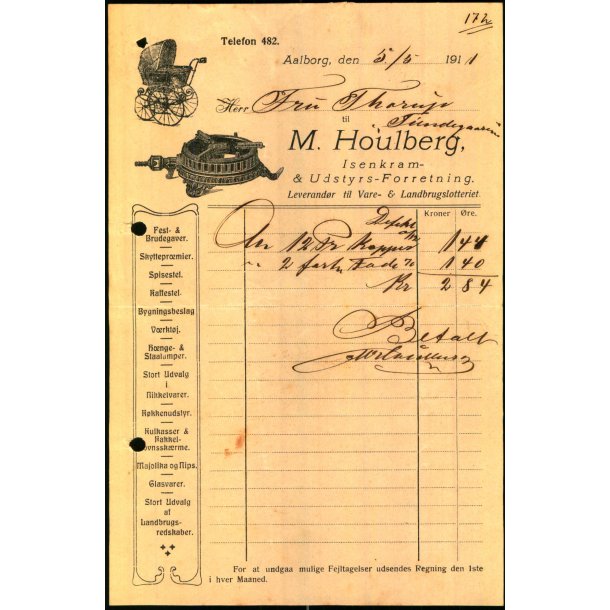 172
Telefon 482.
Aalborg, den 5/5 1911
Herr Fru Thorup
til
M. Houlberg,
Isenkram-
& Udstyrs-Forretning.
Leverandør til Vare- & Landbrugslotteriet.
Kroner Øre.
An 12 Pr Kopper 1 44
" 2 Fade 70 1 40
Kr 2 84
Betalt
Fest- &
Brudegaver.
Skyttepræmier.
Spisestel.
Kaffestel.
Bygningsbeslag
Værktøj.
Hænge- &
Staalamper.
Stort Udvalg
i
Nikkelvarer.
Køkkenudstyr.
Kulkasser &
Kakkel-
ovnsskærme.
Majolika og Nips.
Glasvarer.
Stort Udvalg
af
Landbrugs-
redskaber.
For at undgaa mulige Fejltagelser udsendes Regning den 1ste
i hver Maaned.